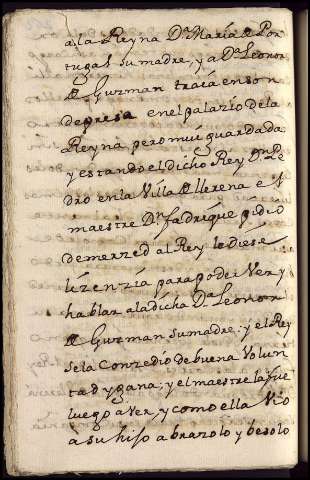 a la Reyna Dª María de Por
tugal su madre, y a Dª Leonor
de Guzman traía en son
de presa en el palazio de la
Reyna pero mui guardada
y estando el dicho Rey Dn Pe
dro en la Villa de llerena el
maestre Dn fadrique pidio
de merzed al Rey le diese
lizenzia para poder Ver y
hablar a la dicha Dª Leonor
de Guzman su madre: y el Rey
se la Conzedio de buena Volun
tad y gana; y el maestre la fue
luego a Ver, y como ella Vio
a su hijo abrazolo y besolo